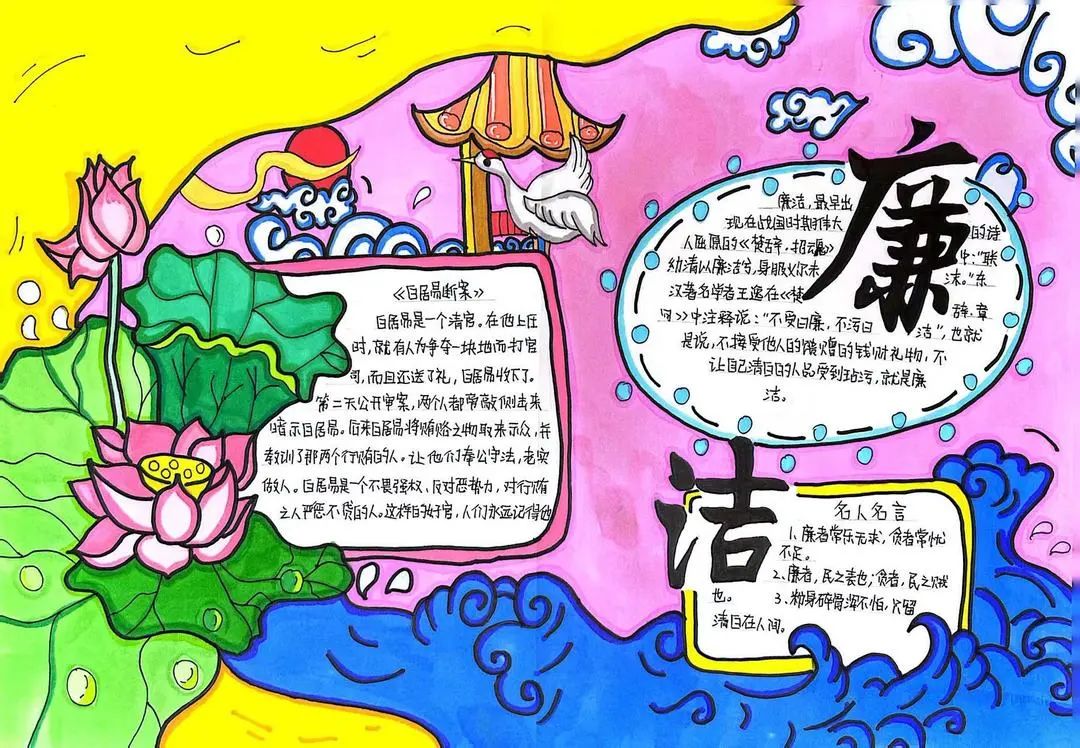 《白居易断案》
白居易是一个清官。在他上任
时,就有人为争夺一块地而打官
司,而且还送了礼,白居易收下了。
第二天公开审案,两个人都带敲侧击来
暗示白居易。后来白居易将贿赂之物取来示众,并
教训了那两个行贿的人。让他们奉公守法,老实
做人。白居易是一个不畏强权、反对恶势力,对行贿
之人严惩不贷的人。这样的好官,人们永远记得他
廉
洁
廉洁,最早出
现在战国时期伟大的诗
人屈原的《楚辞·招魂》中:“朕
幼清以廉洁兮,身服义尔未沫。”东
汉著名学者王逸在《楚辞·章
句》中注释说:“不受曰廉,不污曰洁”,也就
是说,不接受他人的馈赠的钱财礼物,不
让自己清白的人品受到玷污,就是廉
洁。
名人名言
1、廉者常乐无求,贪者常忧
不足。
2、廉者,民之表也;贪者,民之贼
也。
3、粉身碎骨浑不怕,留
清白在人间。